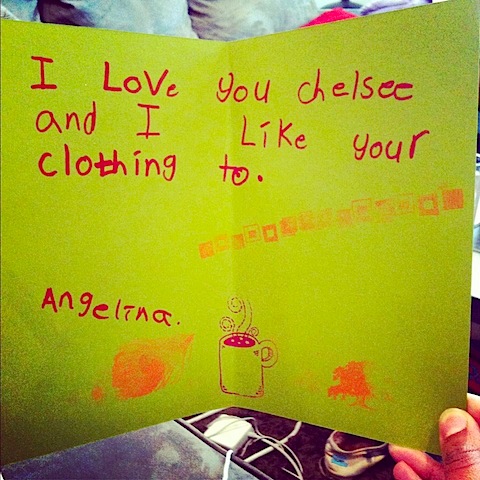 I Love you chelsee
and I Like your
clothing to.
Angelina.